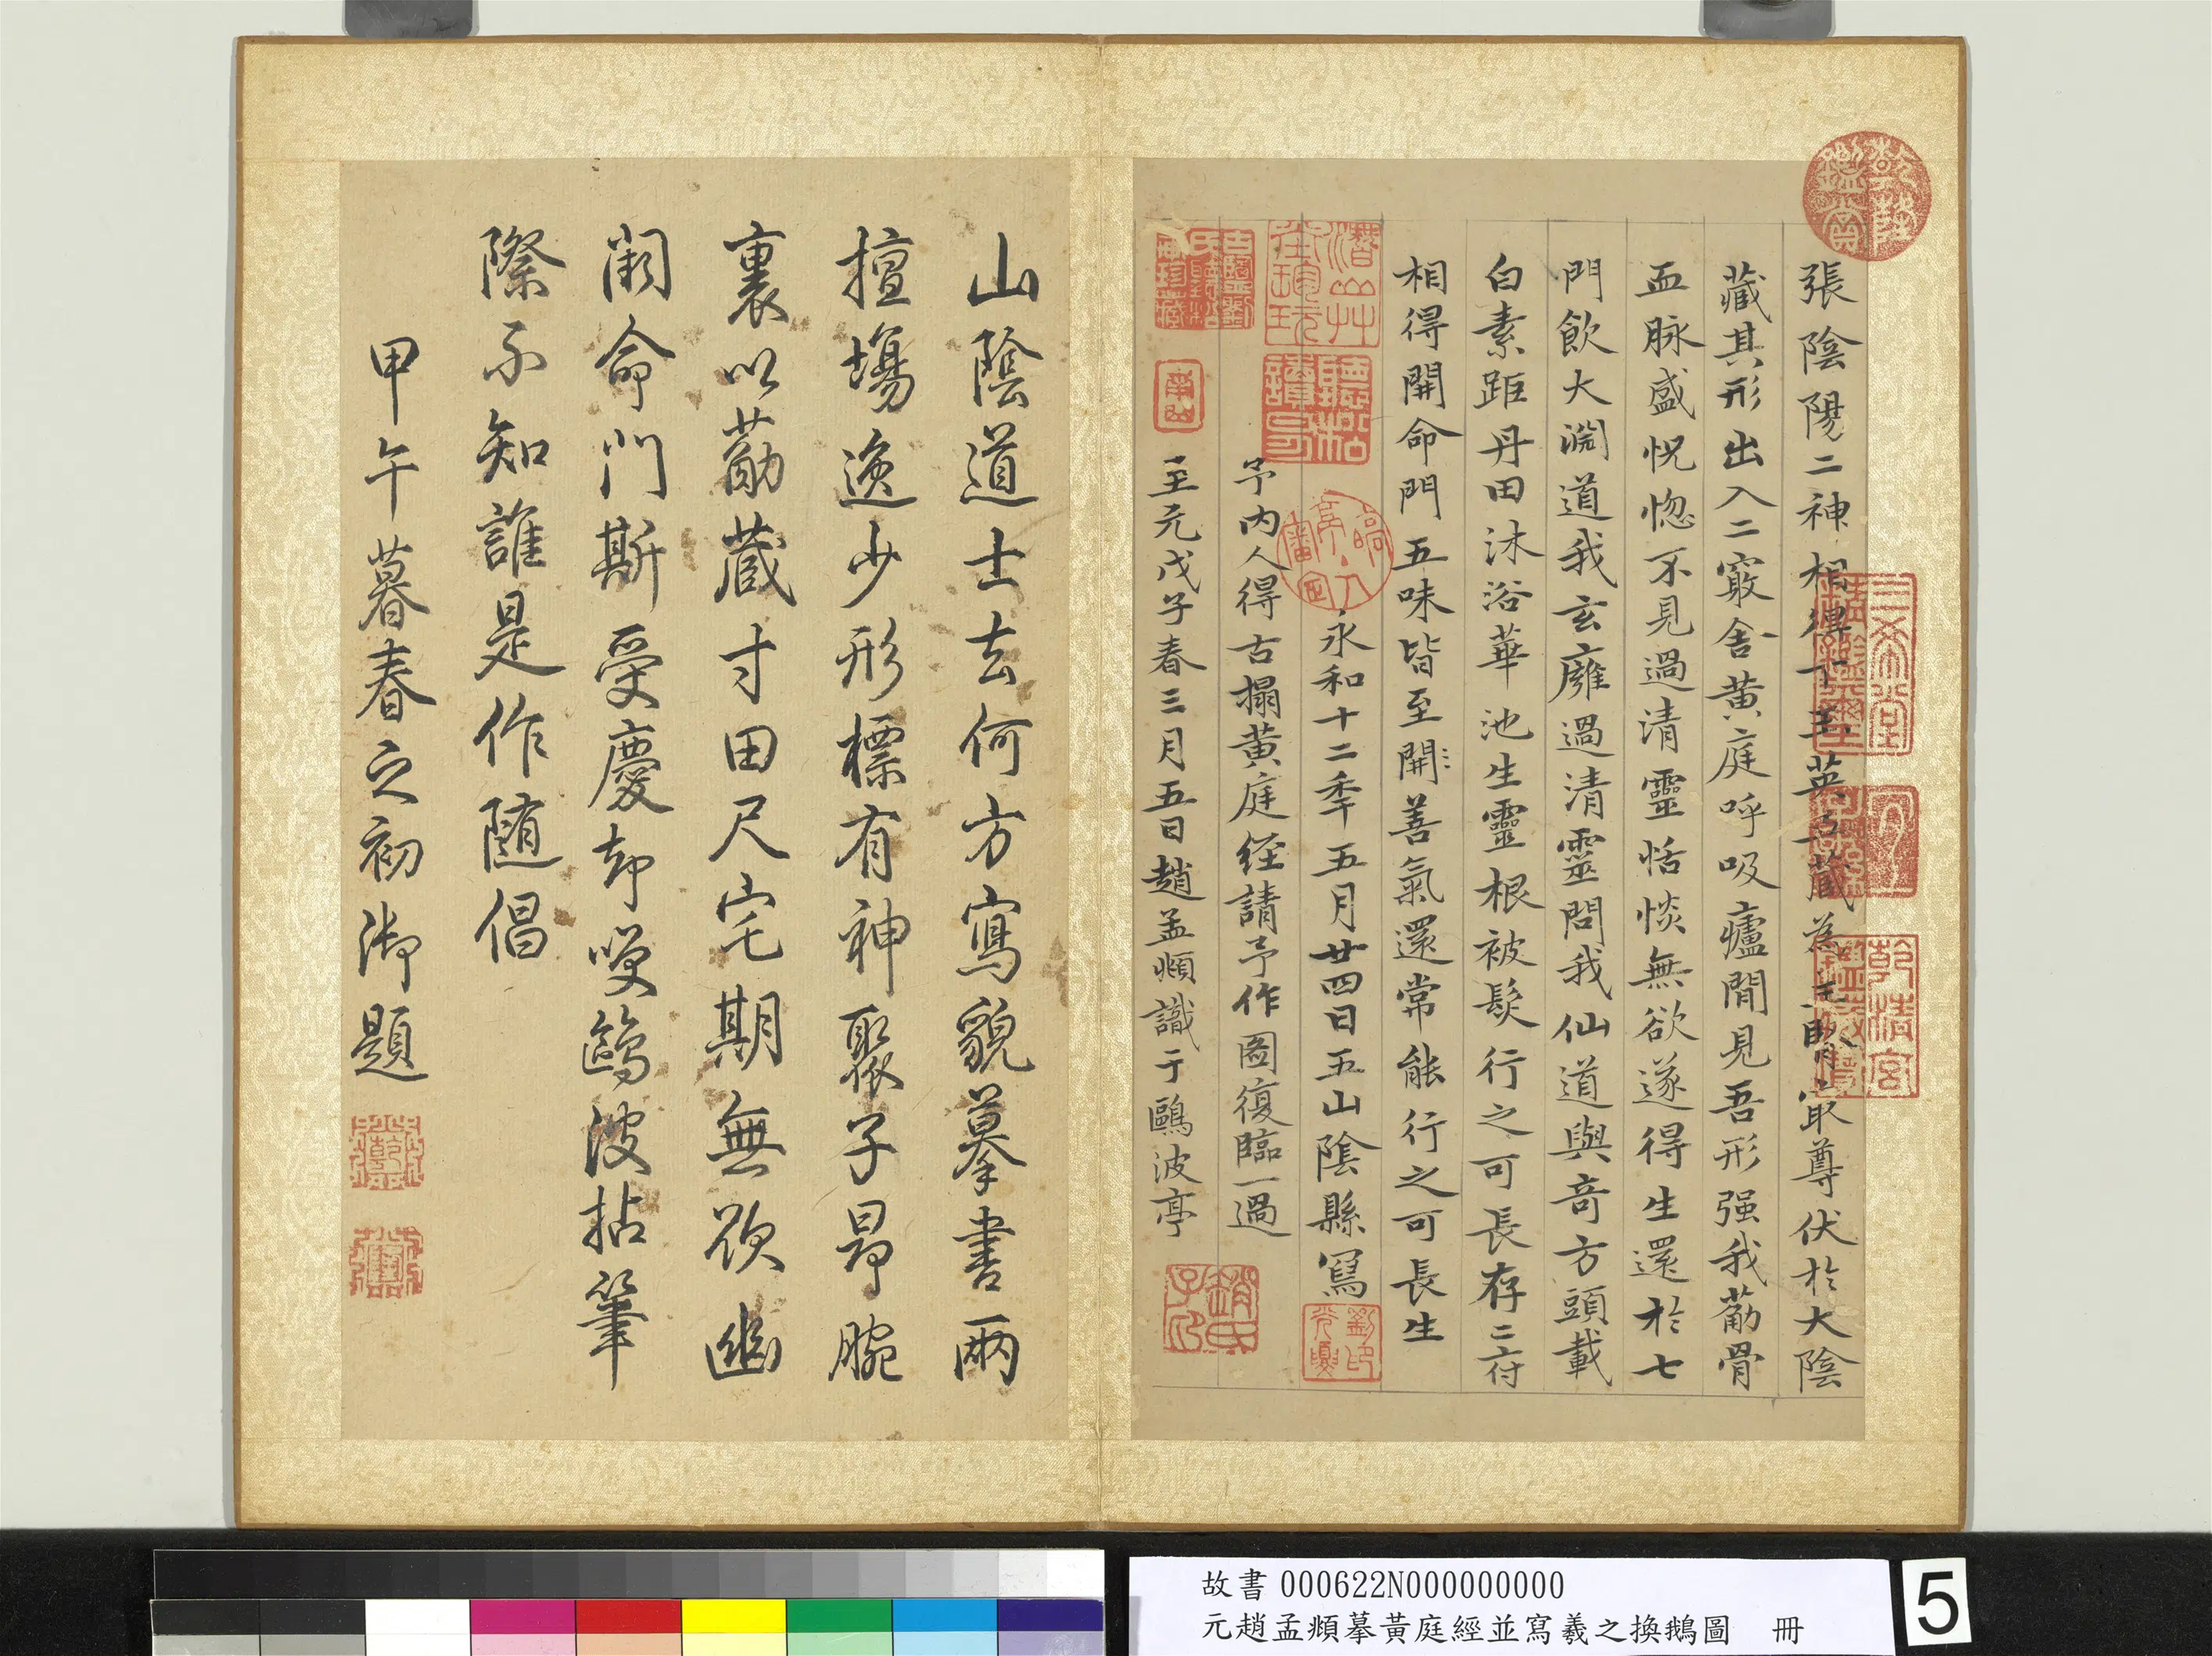 張陰陽二神相得下玉英五藏為主腎最尊伏於大陰
藏其形出入二竅舍黃庭呼吸廬間見吾形强我葋骨
血脉盛恍惚不見過清靈恬惔無欲遂得生還於七
門飲大淵道我玄廱過清靈問我仙道與奇方頭載
白素距丹田沐浴華池生靈根被髮行之可長存二府
相得開命門五味皆至開善氣還常能行之可長生
永和十二年五月廿四日五山陰縣寫
予内人得古搨黃庭经請予作圖復臨一過
至元戊子春三月五日趙孟頫識于鷗波亭
山陰道士去何方寫貌摹書兩
擅塲逸少形標有神聚子昂腕
裏以葋藏寸田尺宅期無欲幽
闕命門斯受慶却嘆鷗波拈筆
際不知誰是作隨倡
甲午暮春之初御題
乾隆鑑賞
三希堂精鑑璽
宜子孫
乾清宮鑑藏寶
趙氏子昂
故書 000622N000000000
元趙孟頫摹黃庭經並寫羲之換鵝圖 冊
5